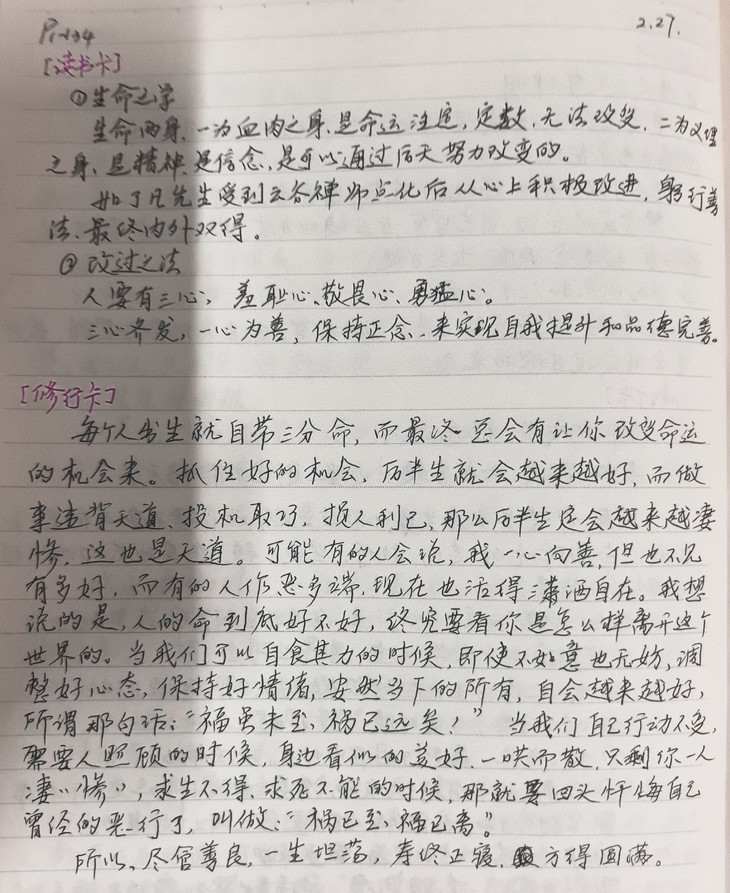 P1-134 2.27.
[读书卡]
①生命之学
生命两身，一为血肉之身，是命运注定，定数，无法改变，二为义理
之身，是精神、是信念，是可以通过后天努力改变的。
如了凡先生受到云谷禅师点化后从心上积极改进，躬行善
法、最终内外双得。
②改过之法
人要有三心：羞耻心、敬畏心、勇猛心。
三心齐发，一心为善，保持正念，来实现自我提升和品德完善。
[修行卡]
每个人出生就自带三分命，而最终总会有让你改变命运
的机会来。抓住好的机会，后半生就会越来越好，而做
事违背天道、投机取巧，损人利己，那么后半生定会越来越凄
惨，这也是天道。可能有的人会说，我一心向善，但也不见
有多好，而有的人作恶多端，现在也活得潇洒自在。我想
说的是，人的命到底好不好，终究要看你是怎么样离开这个
世界的。当我们可以自食其力的时候，即使不如意也无妨，调
整好心态，保持好情绪，安然当下的所有，自会越来越好，
所谓那句话：“福虽未至、祸已远矣！” 当我们自己行动不变，
需要人照顾的时候，身边看似的美好，一哄而散，只剩你一人
凄凄惨惨，求生不得、求死不能的时候，那就要回头忏悔自己
曾经的恶行了，叫做：“祸已至、福已离”。
所以，尽管善良，一生坦荡，寿终正寝，方得圆满。